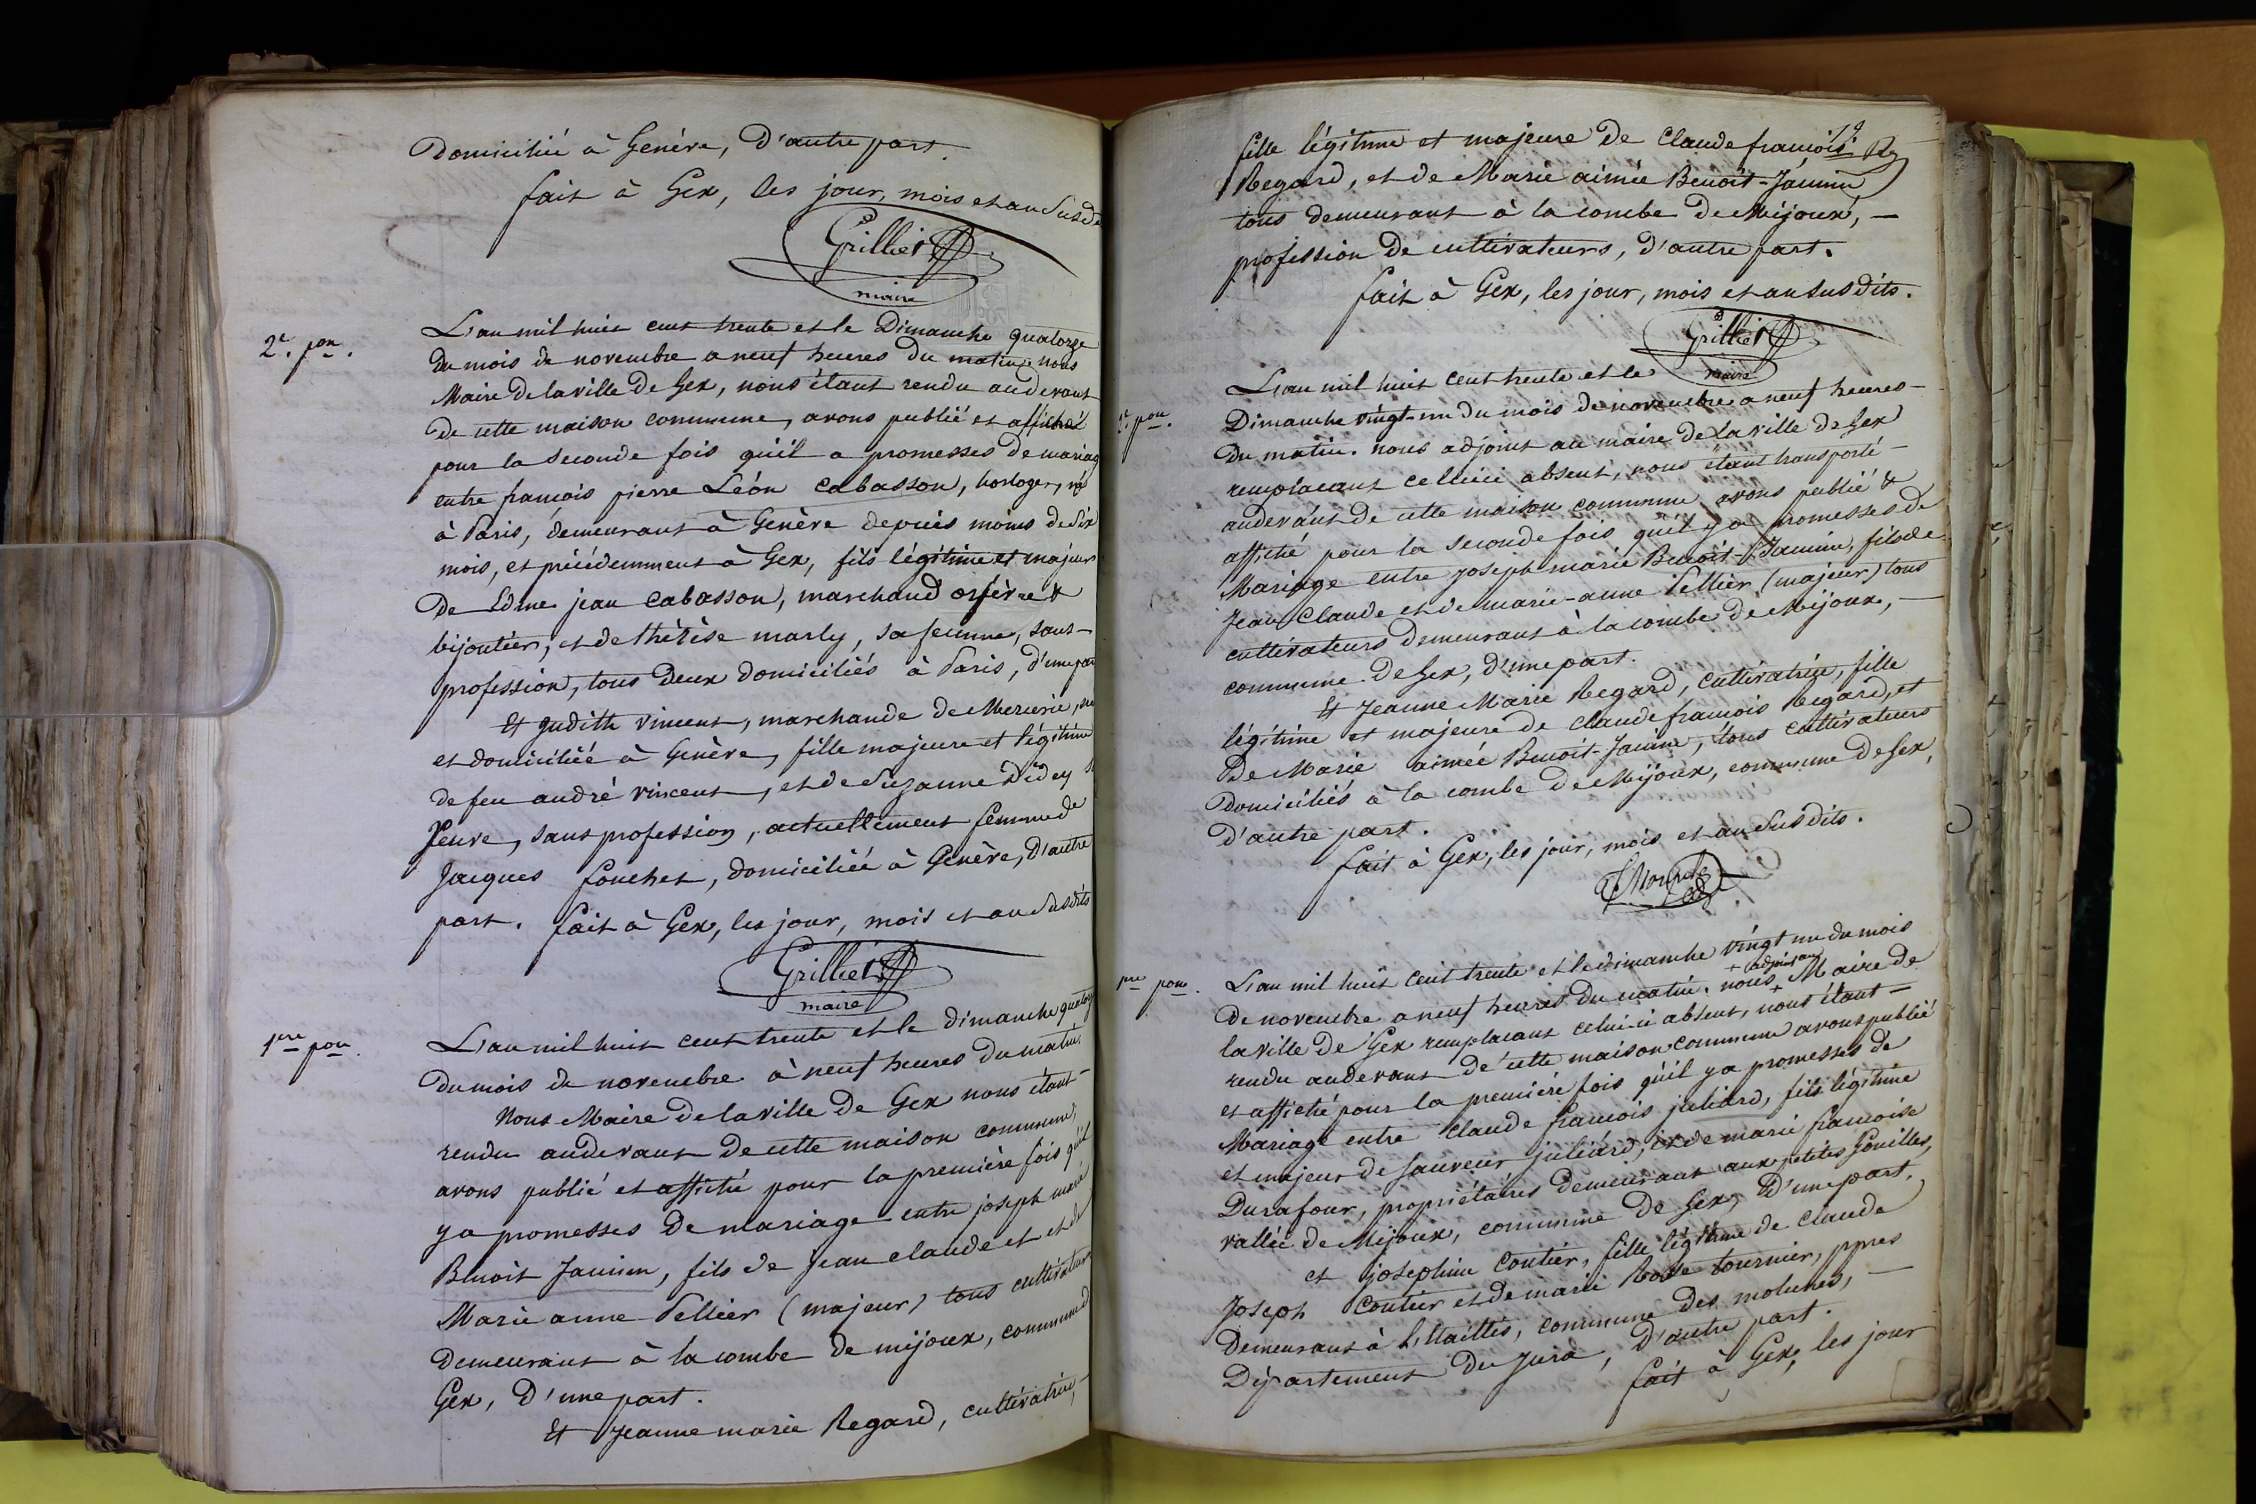 Domicilié à Genève, D'autre part.
fait à Gex, les jour, mois et an susd
Grilliet
maire
2e. pon.
L'an mil huit cent trente et le Dimanche quatorze
du mois de novembre a neuf heures du matin nous
Maire de la ville de Gex, nous étant rendu audevant
de cette maison commune, avons publié et affiché
pour la seconde fois qu'il a promesses de mariag
entre françois pierre Léon Cabasson, horloger, né
à Paris, demeurant à Genève depuis moins de six
mois, et précédemment à Gex, fils légitime et majeur
de Edme jean Cabasson, marchand orfèvre &
bijoutier, et de thérèse marly, sa femme, sans
profession, tous deux domiciliés à Paris, d'une par
Et Judith vincent, marchande de Mercerie, née
et domiciliée à Genève, fille majeure et légitime
de feu andré vincent, et de Suzanne Didey sa
Veuve, sans profession, actuellement femme de
Jacques fouchet, domiciliée à Genève, D'autre
part. fait à Gex, les jour, mois et an susdits
Grilliet
maire
1ere pon.
L'an mil huit cent trente et le dimanche quatorz
du mois de novembre à neuf heures du matin.
Nous Maire de la ville de Gex nous étant
rendu audevant de cette maison commune,
avons publié et affiché pour la première fois qu'il
y a promesses de mariage entre joseph marie
Benoit Jannin, fils de Jean claude et et de
Marie anne Pellier (majeur) tous cultivateurs
demeurant à la combe de mijoux, commune d
Gex, D'une part.
Et Jeanne marie Regard, cultivatrice,
fille légitime et majeure de Claude françois
Regard, et de Marie aimée Benoit-Jannin
tous demeurant à la combe de Mijoux,
profession de cultivateurs, d'autre part.
fait à Gex, les jour, mois et an susdits.
Grilliet
maire
2e. pon.
L'an mil huit cent trente et le
Dimanche vingt-un du mois de novembre a neuf heures
du matin. nous adjoint au maire de la ville de Gex
remplacant celuici absent, nous étant transporté
audevant de cette maison commune avons publié &
affiché pour la seconde fois qu'il y a promesses de
Mariage entre joseph marie Benoit-Jannin, fils de
Jean Claude et de marie-anne Pellier (majeur) tous
cultivateurs demeurant à la combe de Mijoux,
commune de Gex, d'une part.
Et Jeanne Marie Regard, cultivatrice, fille
légitime et majeure de claude francois Regard, et
de Marie aimée Benoit-Jannin, tous cultivateurs
Domiciliés à la combe de Mijoux, commune de Gex,
d'autre part.
fait à Gex, les jour, mois et an susdits.
pre pon.
L'an mil huit cent trente et le dimanche vingt un du mois
+ adjoint au
de novembre a neuf heures du matin, nous + Maire de
la ville de Gex remplacant celui-ci absent, nous étant
rendu audevant de cette maison commune avons publié
et affiché pour la première fois qu'il y a promesses de
Mariage entre Claude francois juliard, fils légitime
et majeur de Sauveur juliard, et de marie francoise
Durafour, propriétaires demeurant aux petites Gouilles,
vallée de Mijoux, commune de Gex, d'une part.
et josephine Coutier, fille légitime de Claude
Joseph Coutier et de marie Rose tournier, ppres
Demeurant à , commune des molunes,
Département du Jura, d'autre part.
fait à Gex, les jour